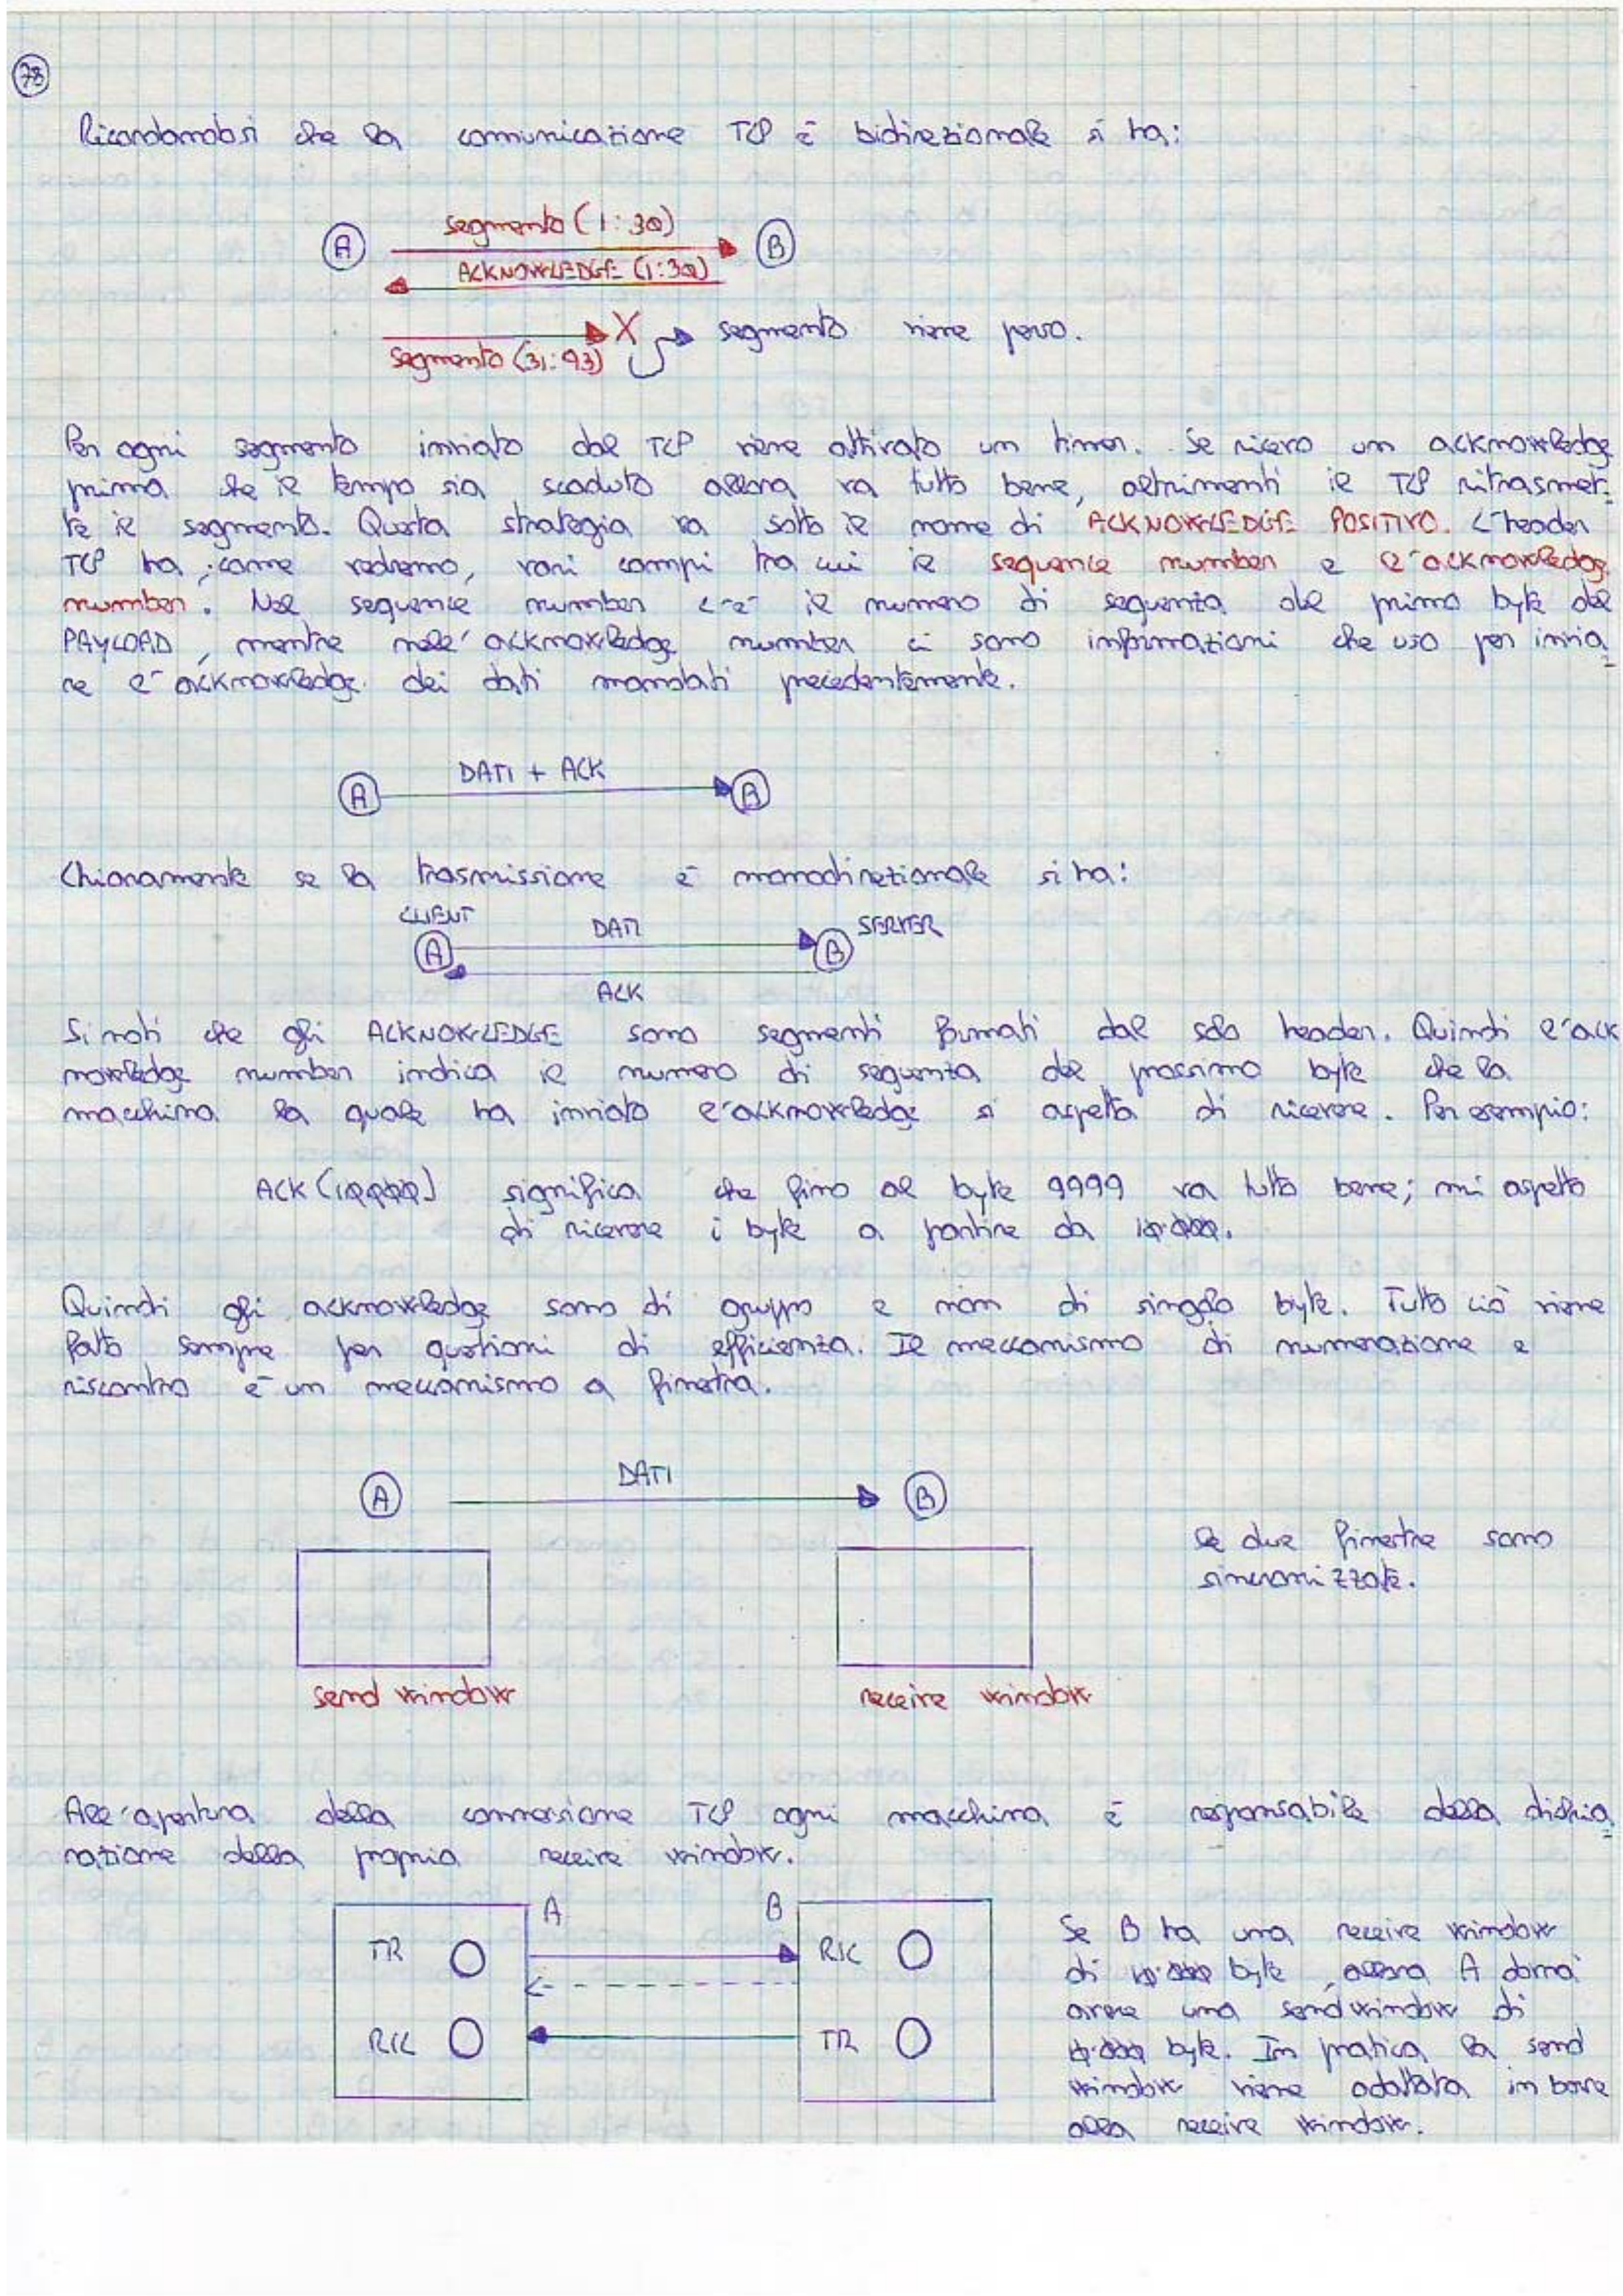 78
Ricordandosi che la comunicazione TCP è bidirezionale si ha:
A segmento (1:30) B
ACKNOWLEDGE (1:30)
X segmento viene perso.
segmento (31:93)
Per ogni segmento inviato dal TCP viene attivato un timer. Se ricevo un acknowledge
prima che il tempo sia scaduto allora va tutto bene, altrimenti il TCP ritrasmet-
te il segmento. Questa strategia va sotto il nome di ACKNOWLEDGE POSITIVO. L'header
TCP ha, come vedremo, vari campi tra cui il sequence number e l'acknowledge
number. Nel sequence number c'è il numero di sequenza del primo byte del
PAYLOAD, mentre nell'acknowledge number ci sono informazioni che uso per invia=
re l'acknowledge dei dati mandati precedentemente.
A DATI + ACK B
Chiaramente se la trasmissione è monodirezionale si ha:
CLIENT DATI SERVER
A B
ACK
Si noti che gli ACKNOWLEDGE sono segmenti formati dal solo header. Quindi l'ack
nowledge number indica il numero di sequenza del prossimo byte che la
macchina la quale ha inviato l'acknowledge si aspetta di ricevere. Per esempio:
ACK (10000) significa che fino al byte 9999 va tutto bene; mi aspetto
di ricevere i byte a partire da 10.000.
Quindi gli acknowledge sono di gruppo e non di singolo byte. Tutto ciò viene
fatto sempre per questioni di efficienza. Il meccanismo di numerazione e
riscontro è un meccanismo a finestra.
A DATI B
Le due finestre sono
sincronizzate.
send window receive window
All'apertura della connessione TCP ogni macchina è responsabile della dichia=
razione della propria receive window.
A B
TR RIC
RIC TR
Se B ha una receive window
di 10.000 byte, allora A dovrà
avere una send window di
10.000 byte. In pratica la send
window viene adattata in base
alla receive window.